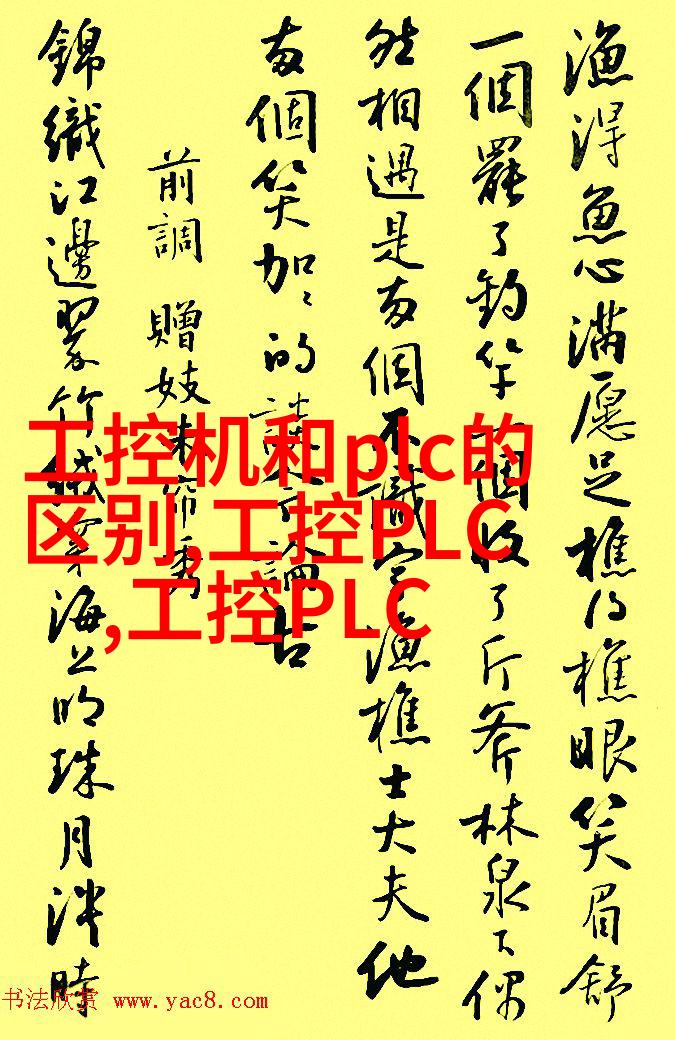 漁得魚心滿愿足樵得樵眼笑眉舒
一個罷了釣竿一個收了斤斧林泉下偶
然相遇是兩個不識字漁樵士大夫他
兩個笑加々的談今論古
前調 贈妓朱帘秀
錦織江邊翠竹絨穿海上明珠月淡時
工控机和plc的
区别,工控PLC
,工控PLC
书法欣赏 www.yac8.com